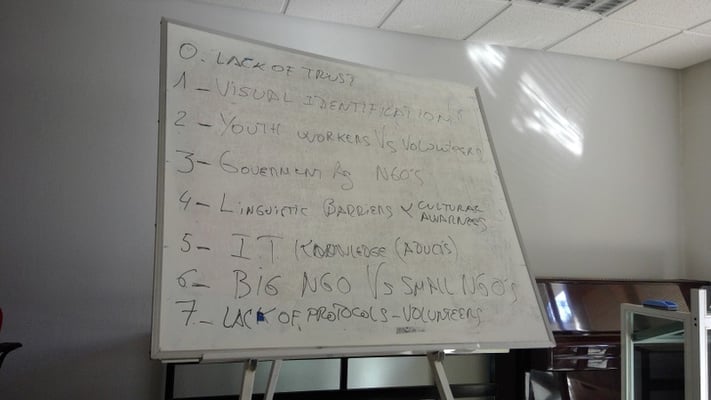 0. LACK OF TRUST
1 - VISUAL IDENTIFICATION'S
2 - YOUTH WORKERS VS VOLUNTEERS
3 - GOVERNMENT NGO'S
4 - LINGUISTIC BARRIERS CULTURAL
AWARNESS
5 - IT KNOWLEDGE
6 - BIG NGO VS SMALL NGO'S
7 - LACK OF PROTOCOLS - VOLUNTEERS